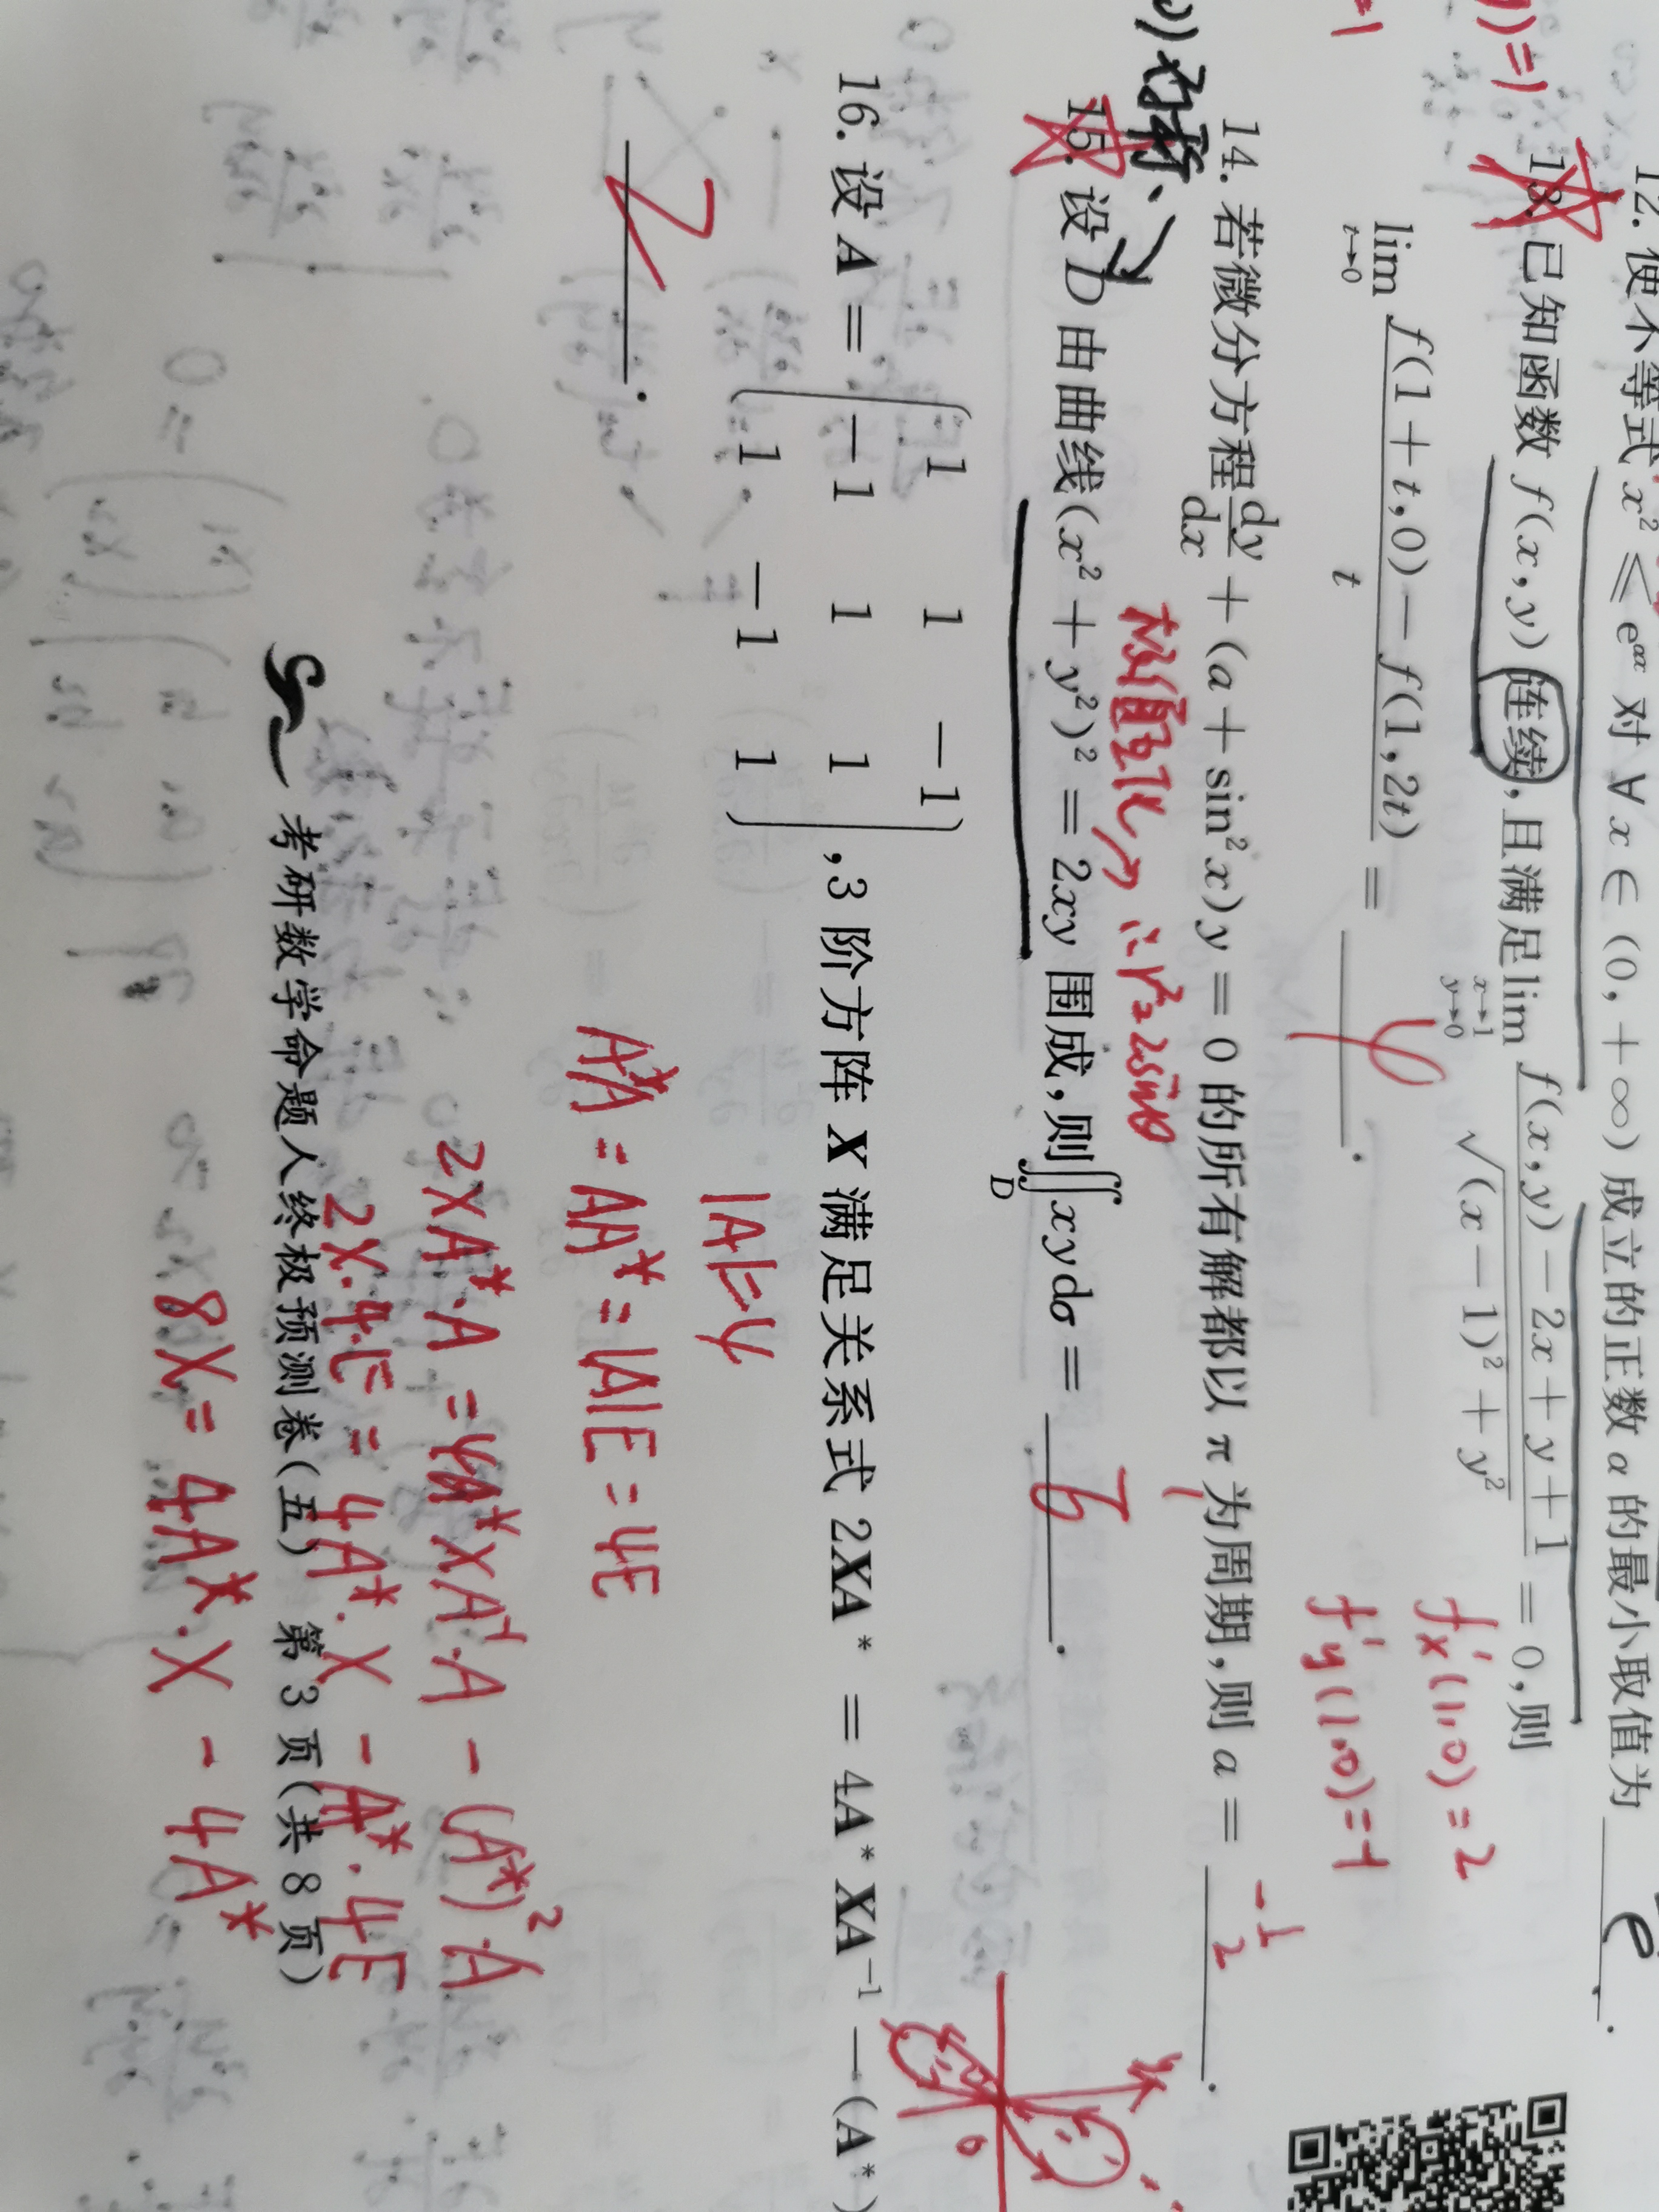 12. 使不等式 x² ≤ e^{αx} 对 ∀ x ∈ (0, +∞) 成立的正数 α 的最小取值为 ____.
13. 已知函数 f(x,y) 连续, 且满足 lim_{x→1, y→0} (f(x,y) − 2x + y + 1)/√((x − 1)² + y²) = 0, 则
lim_{t→0} (f(1 + t, 0) − f(1, 2t))/t = ____.
4
f'x(1,0) = 2
f'y(1,0) = -1
14. 若微分方程 dy/dx + (a + sin²x)y = 0 的所有解都以 π 为周期, 则 a = ____.
-1/2
∴ r² = 2sinθ
15. 设 D 由曲线 (x² + y²)² = 2xy 围成, 则 ∬_D xydσ = ____.
16. 设 A = ( 1 1 −1
−1 1 1
1 −1 1 ), 3 阶方阵 X 满足关系式 2XA* = 4A*XA⁻¹ − (A*)
____.
|A| = 4
A*A = AA* = |A|E = 4E
2XA*·A = 4A*XA⁻¹·A − (A*)²·A
2X·4·E = 4A*·X − A*·4E
考研数学命题人终极预测卷(五) 第 3 页(共 8 页)
8X = 4A*·X − 4A*